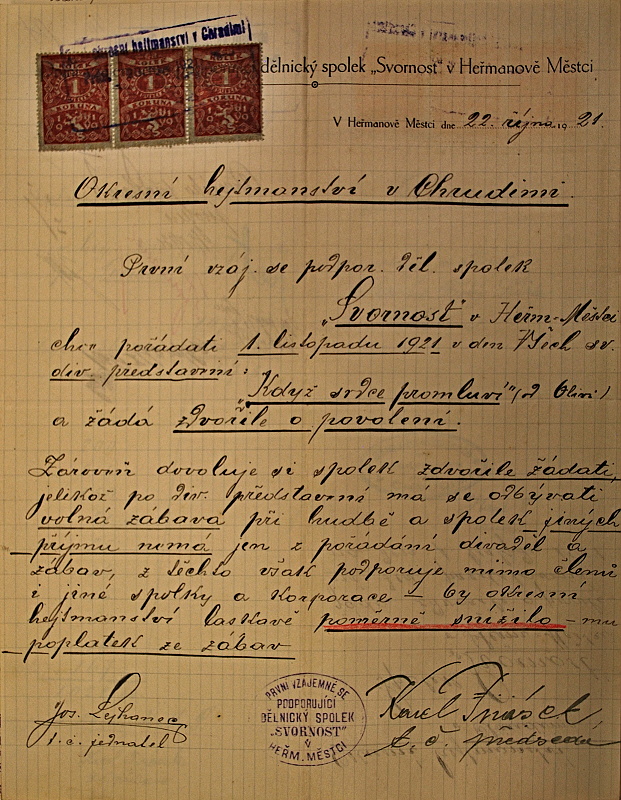 hejtmanství v Chrudimi
KOLEK
1
KORUNA
1
KORUNA
1
KORUNA
dělnický spolek „Svornost" v Heřmanově Městci
V Heřmanově Městci dne 22. října 1921.
Okresní hejtmanství v Chrudimi.
První vzáj. se podpor. děl. spolek
„Svornost" v Heřm-Městci
chce pořádati 1. listopadu 1921 v den Všech sv.
div. představení:
„Když srdce promluví" (od
a žádá zdvořile o povolení.
Zároveň dovoluje si spolek zdvořile žádati,
jelikož po div. představení má se odbývati
volná zábava při hudbě a spolek jiných
příjmu nemá jen z pořádání divadel a
zábav, z těchto však podporuje mimo členů
i jiné spolky a korporace – by okresní
hejtmanství laskavě poměrně snížilo – mu
poplatek ze zábav
Jos.
t. č. jednatel
PRVNÍ VZÁJEMNĚ SE
PODPORUJÍCÍ
DĚLNICKÝ SPOLEK
„SVORNOST"
V
HEŘM. MĚSTCI
Karel
t. č. předseda